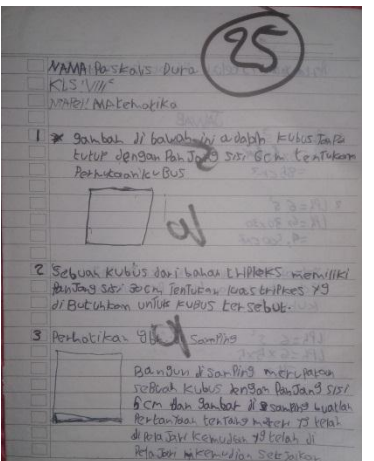 25
NAMA: Paskalis Dura
KLS: VIII C
MAPEL: MAtematika
1 gambar di bawah ini adalah kubus Tanpa
tutup dengan PanJang sisi 6cm tentukan
Permukaan kuBus
2 Sebuah kubus dari bahan tripleks memiliki
PanJang sisi 20 cm Tentukan luas tripkes yg
di Butuhkan untuk kubus tersebut.
3 Perhatikan samping
Bangun disamping merupakan
sebuah kubus dengan PanJang sisi
6 cm dan gambar di samping buatlah
Pertanyaan tentang materi yg telah
di Pela Jari kemudian yg telah di
Pela Jari kemudian